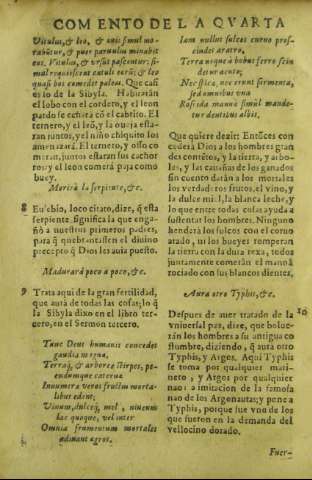 COMENTO DE LA QVARTA
Vitulus, & leo, & ouis simul mo-
rabũtur, & puer paruulus minabit
eos. Vitulus, & vrsus pascentur: si-
mul requiescent catuli eorũ: & leo
quasi bos comedet paleas. Que casi
es lo de la Sibyla. Habitarán
el lobo con el cordero, y el leon
pardo se echará cõ el cabrito. El
ternero, y el leõ, y la oueja esta-
ran juntos, y el niño chiquito los
amenazará. El ternero, y osso co
meran, juntos estaran sus cachor
ros: y el leon comerá paja como
buey.
Morirà la serpiente, &c.
8 Eusebio, loco citato, dize, q̃ esta
serpiente significa la que enga-
ñò a nuestros primeros padres,
para q̃ quebrantassen el diuino
precepto q̃ Dios les auia puesto.
Madurarà poco a poco, &c.
9 Trata aqui de la gran fertilidad,
que aurá de todas las cosas; lo q̃
la Sibyla dixo en el libro ter-
cero, en el Sermon tercero.
Tunc Deus humanis concedet
gaudia magna,
Terraq́, & arbores stirpes, pe-
cudumque caterua
Innumera veros fructus morta-
libus edent;
Vinum, dulceq́, mel, niueum
lac quoque, vel inter
Omnia frumentum mortales
adiuuat agros.
Iam nullus sulcos curuo pros-
cindet aratro,
Terra neque à bobus ferro scin
detur acuto;
Nec stica, nec erunt sarmenta,
sed omnibus vna
Roscida manna simul mande-
tur dentibus albis.
Que quiere dezir: Entõces con
cederá Dios a los hombres gran
des contẽtos, y la tierra, y arbo-
les, y las canañas de los ganados
sin cuento darán a los mortales
los verdaderos frutos, el vino, y
la dulce miel, la blanca leche, y
lo que entre todas cosas ayuda a
sustentar los hombres. Ninguno
henderá los sulcos con el coruo
arado, ni los bueyes romperan
la tierra con la dura rexa, todos
juntamente comerán el manná
rociado con sus blancos dientes.
Aura otro Typhis, &c.
Despues de auer tratado de la 10
vniuersal paz, dize, que bolue-
rán los hombres a su antigua co
stumbre, diziendo, q̃ aurá otro
Typhis, y Argos. Aqui Typhis
se toma por qualquier mari-
nero, y Argos por qualquier
nao: a imitacion de la famosa
nao de los Argonautas; y pone a
Typhis, porque fue vno de los
que fueron en la demanda del
vellocino dorado.
Fuer-